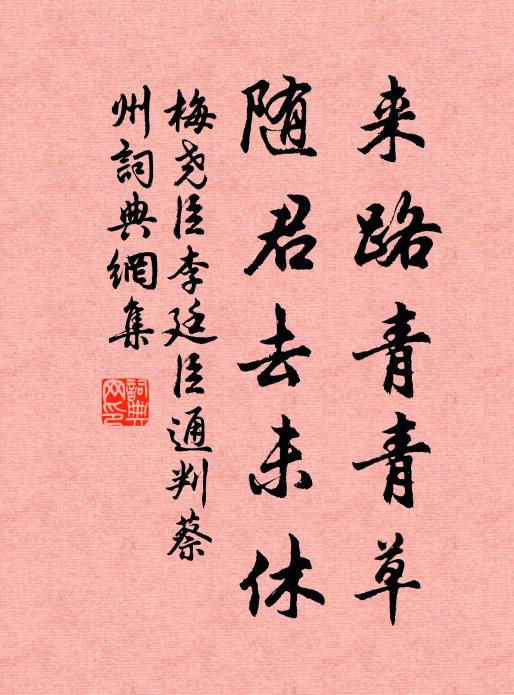 来路青青草
随君去未休
梅尧臣李廷臣通判蔡
州詞典網集
詞典網印